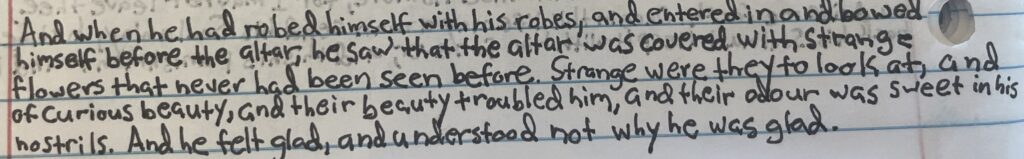 And when he had robed himself with his robes, and entered in and bowed
himself before the altar, he saw that the altar was covered with strange
flowers that never had been seen before. Strange were they to look at, and
of curious beauty, and their beauty troubled him, and their odour was sweet in his
nostrils. And he felt glad, and understood not why he was glad.